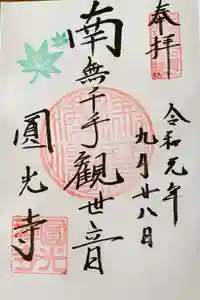 奉拝
令和元年
九月廿八日
南無千手觀世音
圓光寺